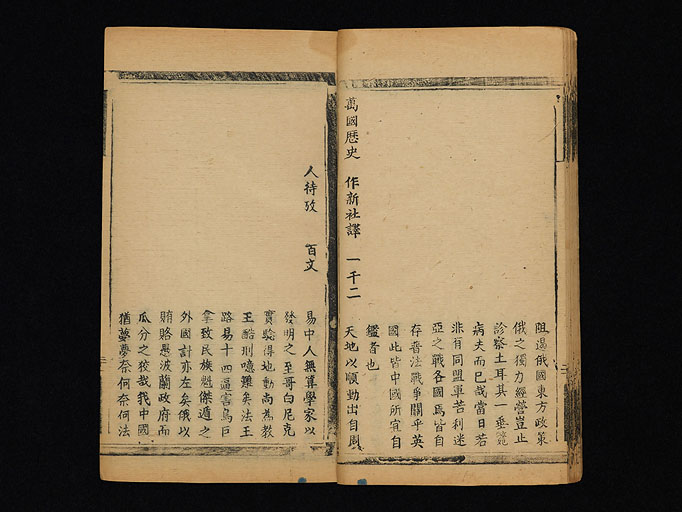 阻遏俄國東方政策
俄之獨力經營豈止
診察土耳其一垂斃
病夫而已哉當日若
非有同盟軍苦利迷
亞之戰各國焉皆自
存普法戰爭關乎英
國此皆中國所宜自
鑑者也
萬國歷史 作新社譯 一千二
天地以順動出自周
易中人無算學家以
發明之至哥白尼克
實驗得地動尚為教
王酷刑噫難矣法王
路易十四逼害烏巨
拿致民族魁傑遁之
外國計亦左矣俄以
賄賂愚波蘭政府而
瓜分之狡哉我中國
猶夢夢奈何奈何法
人待攷 百文